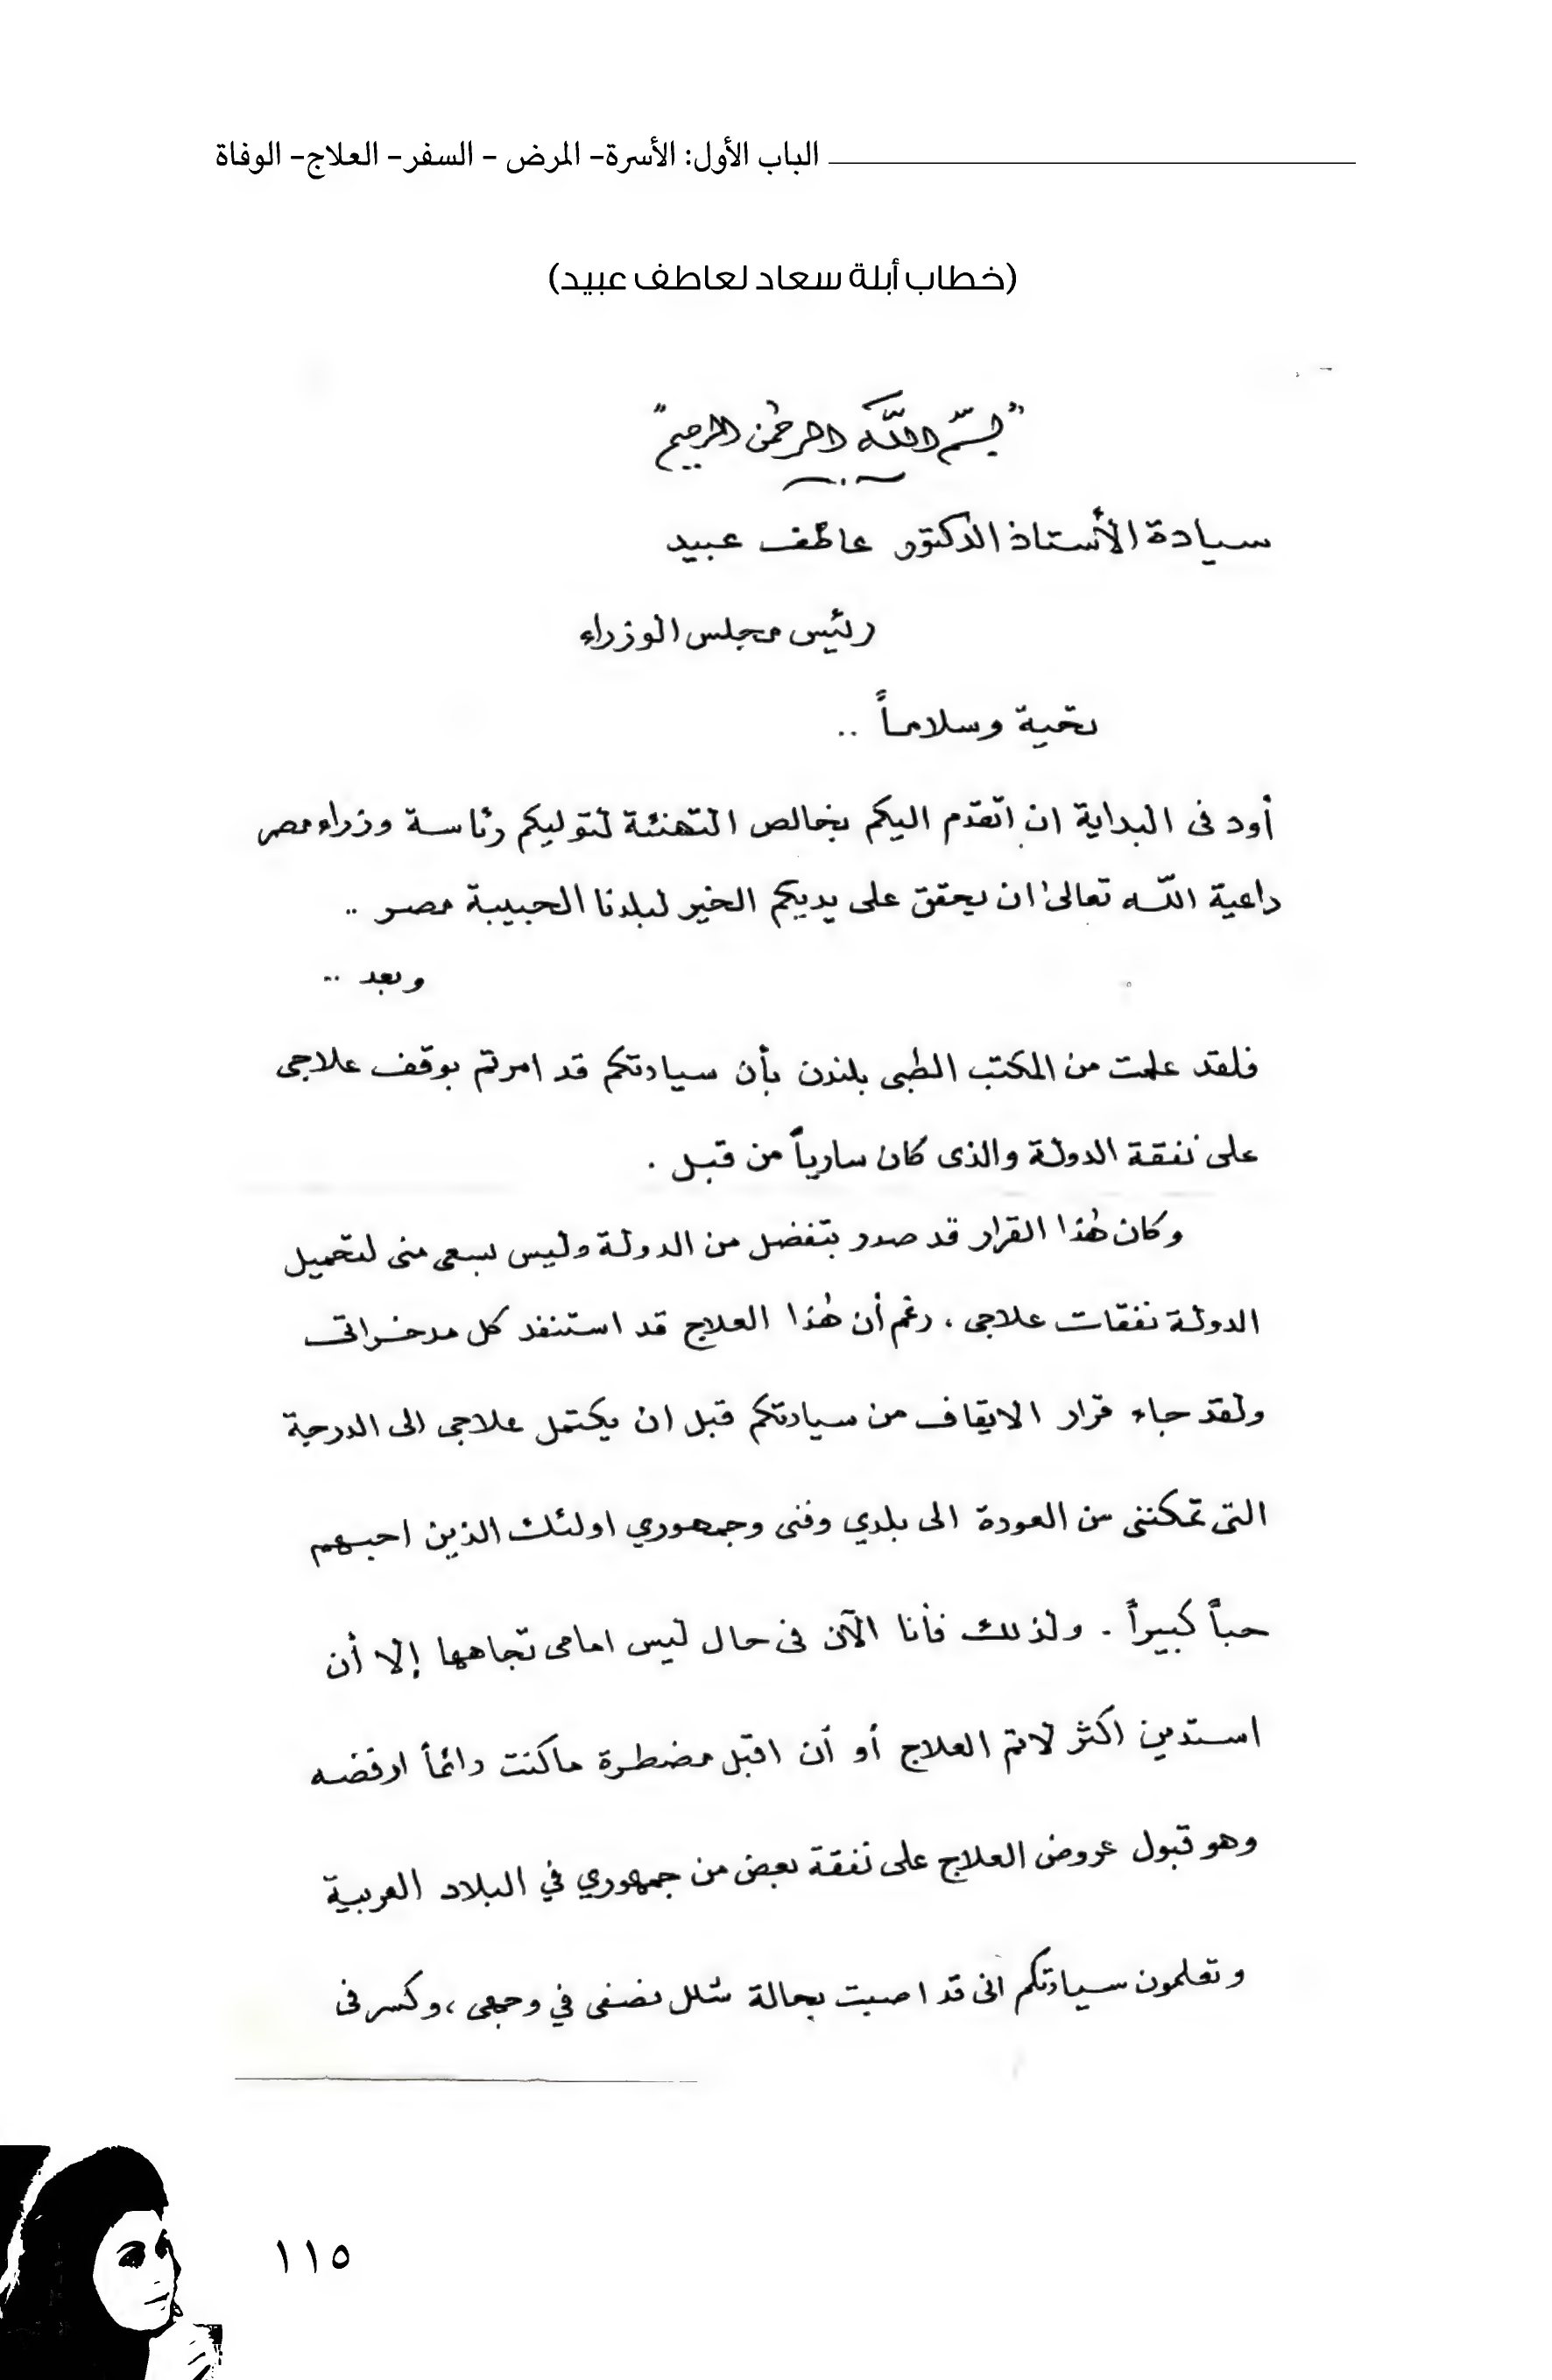 الباب الأول: الأسرة- المرض - السفر- العلاج- الوفاة
(خطاب أبلة سعاد لعاطف عبيد)
"بسم الله الرحمن الرحيم"
سيادة الأستاذ الدكتور عاطف عبيد
رئيس مجلس الوزراء
تحية وسلاماً ..
أود فى البداية ان اتقدم اليكم بخالص التهنئة لتوليكم رئاسة وزراء مصر
داعية الله تعالى ان يحقق على يديكم الخير لبلدنا الحبيبة مصر ..
وبعد ..
فلقد علمت من المكتب الطبى بلندن بأن سيادتكم قد امرتم بوقف علاجى
على نفقة الدولة والذى كان سارياً من قبل .
وكان هذا القرار قد صدر بتفضل من الدولة وليس بسعى منى لتحميل
الدولة نفقات علاجى ، رغم أن هذا العلاج قد استنفد كل مدخراتى
ولقد جاء قرار الايقاف من سيادتكم قبل ان يكتمل علاجى الى الدرجة
التى تمكننى من العودة الى بلدي وفنى وجمهوري اولئك الذين احبهم
حباً كبيراً . ولذلك فأنا الآن فى حال ليس امامى تجاهها إلا أن
استدين اكثر لاتم العلاج أو أن اقبل مضطرة ماكنت دائماً ارفضه
وهو قبول عروض العلاج على نفقة بعض من جمهوري في البلاد العربية
وتعلمون سيادتكم انى قد اصبت بحالة شلل نصفى في وجهى ، وكسر فى
١١٥